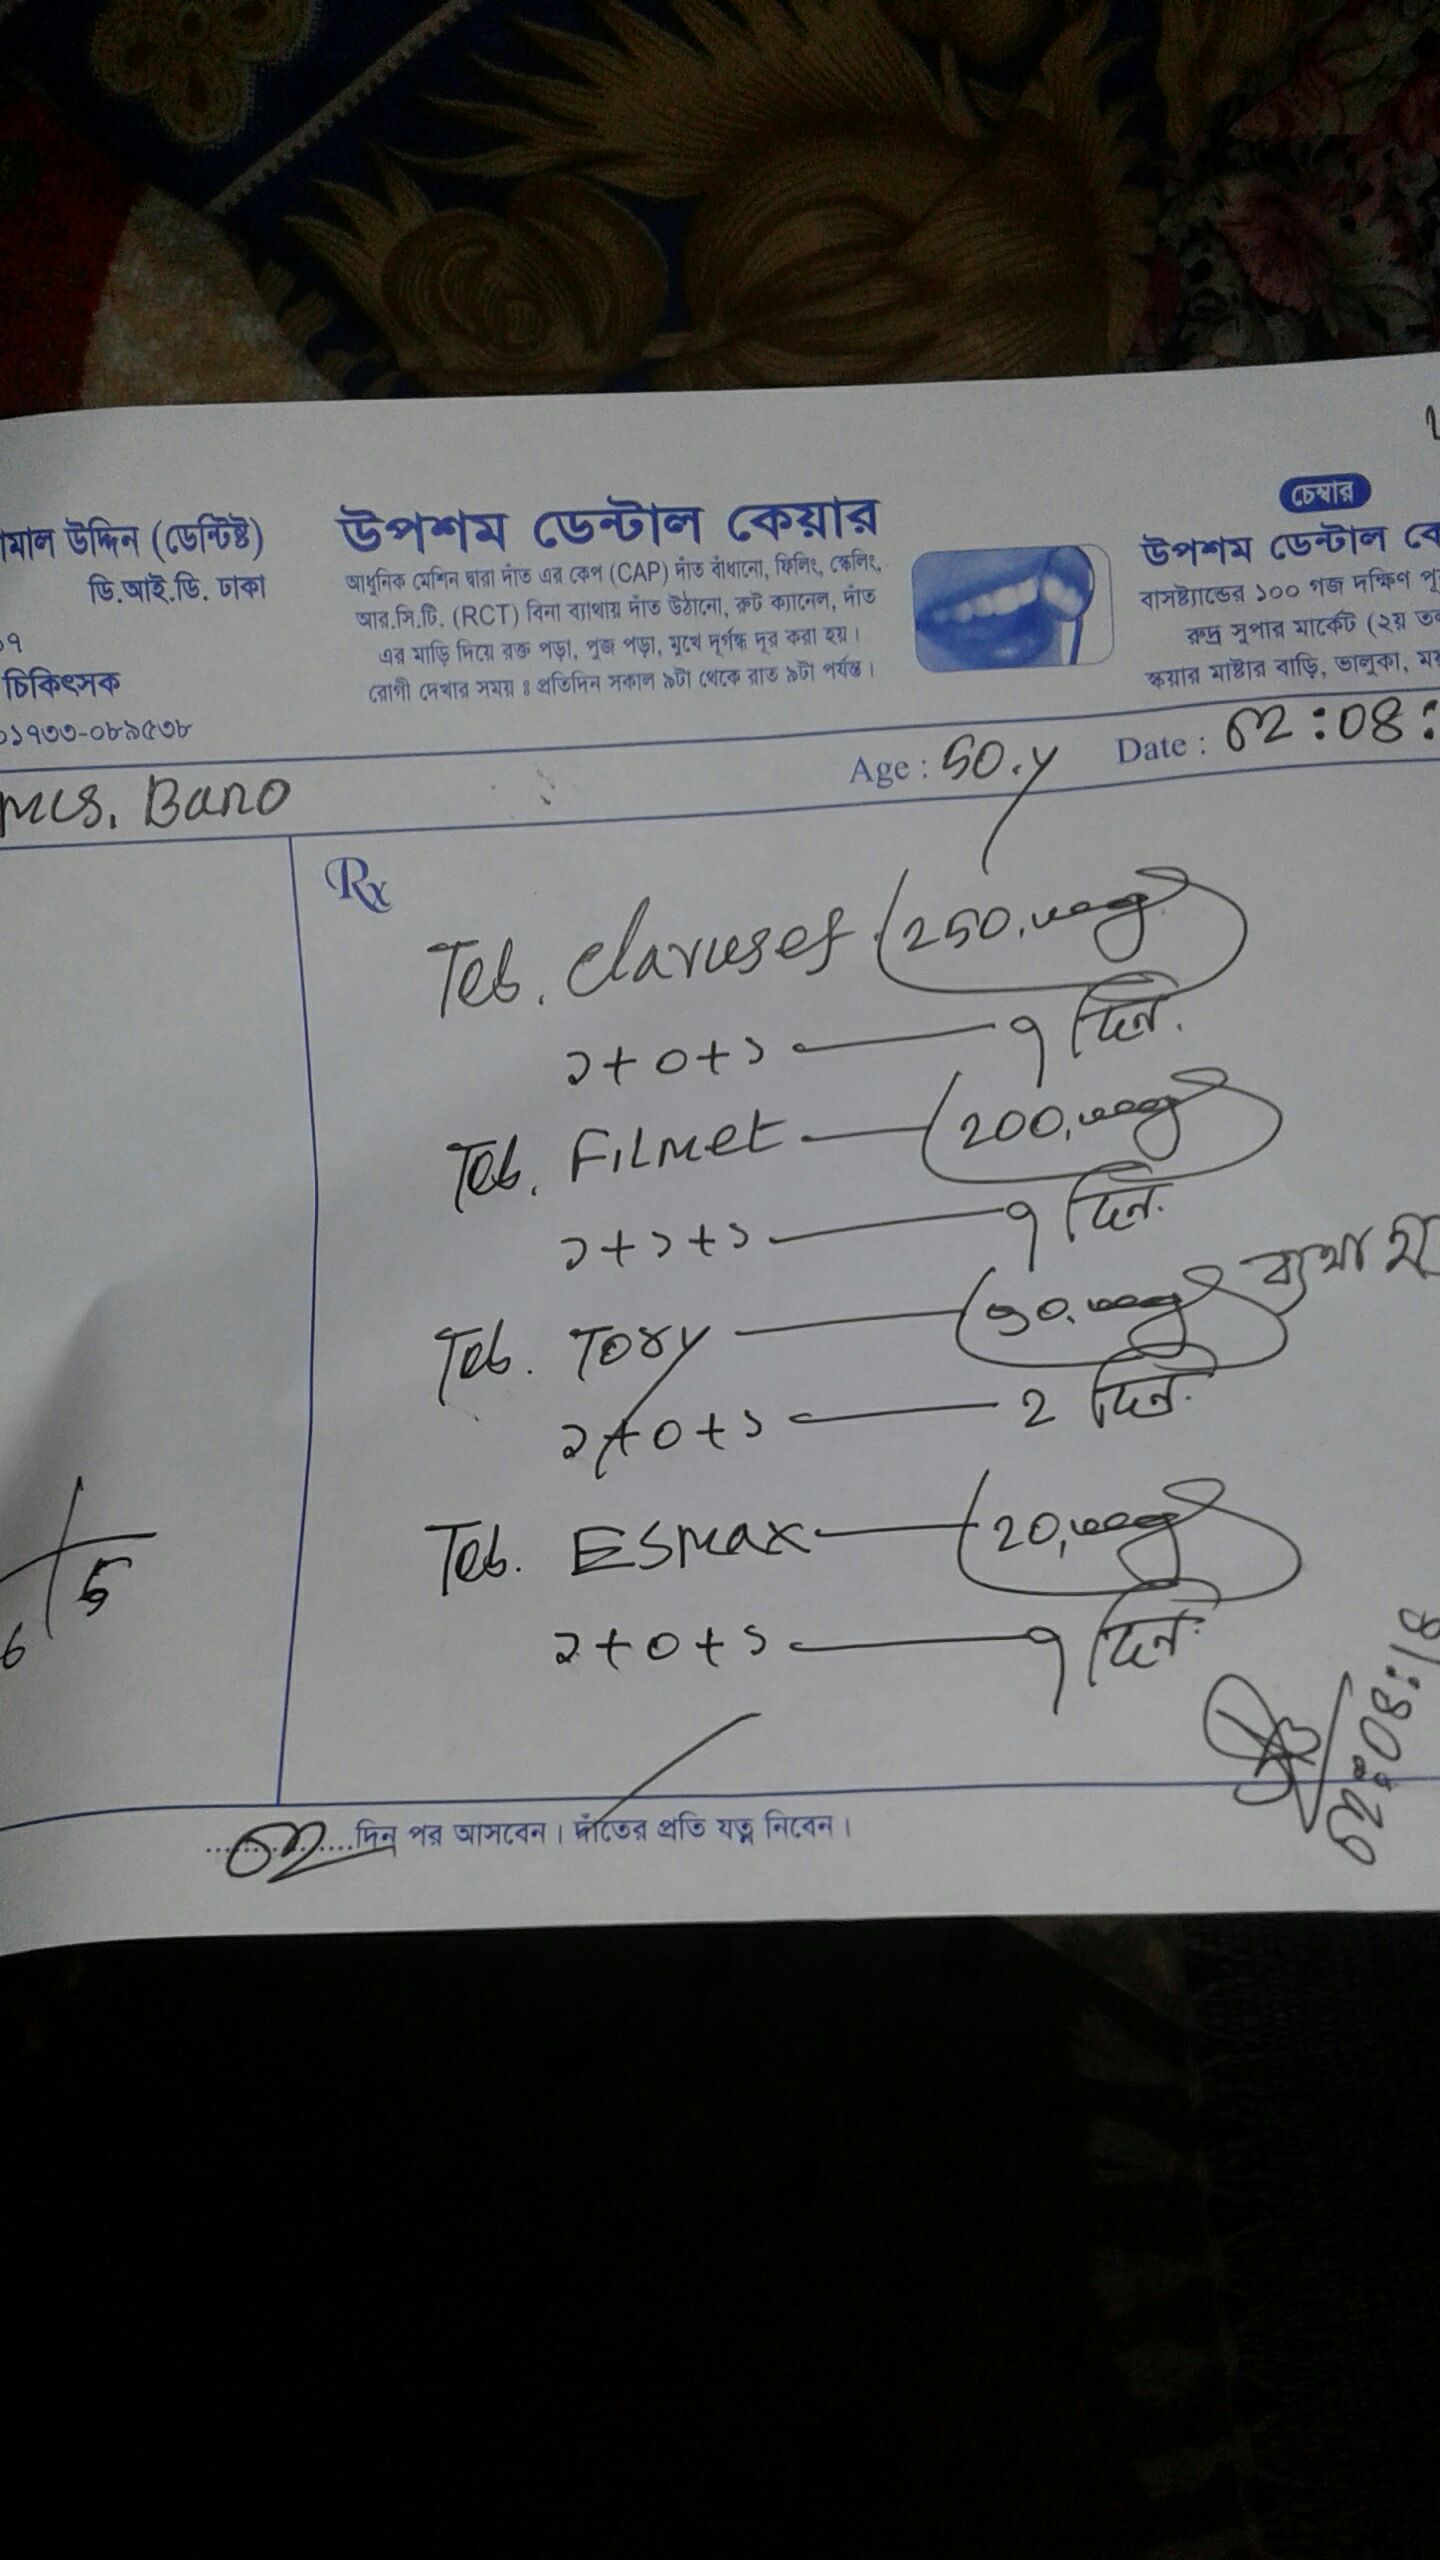 মাল উদ্দিন (ডেন্টিষ্ট)
ডি.আই.ডি. ঢাকা
চিকিৎসক
০১৭৩৩-০৮৯৫৩৮
উপশম ডেন্টাল কেয়ার
আধুনিক মেশিন দ্বারা দাঁত এর কেপ (CAP) দাঁত বাঁধানো, ফিলিং, স্কেলিং,
আর.সি.টি. (RCT) বিনা ব্যাথায় দাঁত উঠানো, রুট ক্যানেল, দাঁত
এর মাড়ি দিয়ে রক্ত পড়া, পুজ পড়া, মুখে দূর্গন্ধ দূর করা হয়।
রোগী দেখার সময় ঃ প্রতিদিন সকাল ৯টা থেকে রাত ৯টা পর্যন্ত।
চেম্বার
উপশম ডেন্টাল কে
বাসষ্ট্যান্ডের ১০০ গজ দক্ষিণ পূ
রুদ্র সুপার মার্কেট (২য় তল
স্কয়ার মাষ্টার বাড়ি, ভালুকা, ময়
Mrs. Bano Age : 50.y Date : ০২:08:
Rx
Teb. Clarusef (250.mg)
১+০+১ — ৭ দিন.
Teb. Filmet — (200.mg)
১+১+১ — ৭ দিন.
Teb. Tory — (90.mg) ব্যথা
১+০+১ — 2 দিন.
Teb. ESMax — (20.mg)
১+০+১ — ৭ দিন.
6 5
০২:08:18
০২ দিন পর আসবেন। দাঁতের প্রতি যত্ন নিবেন।